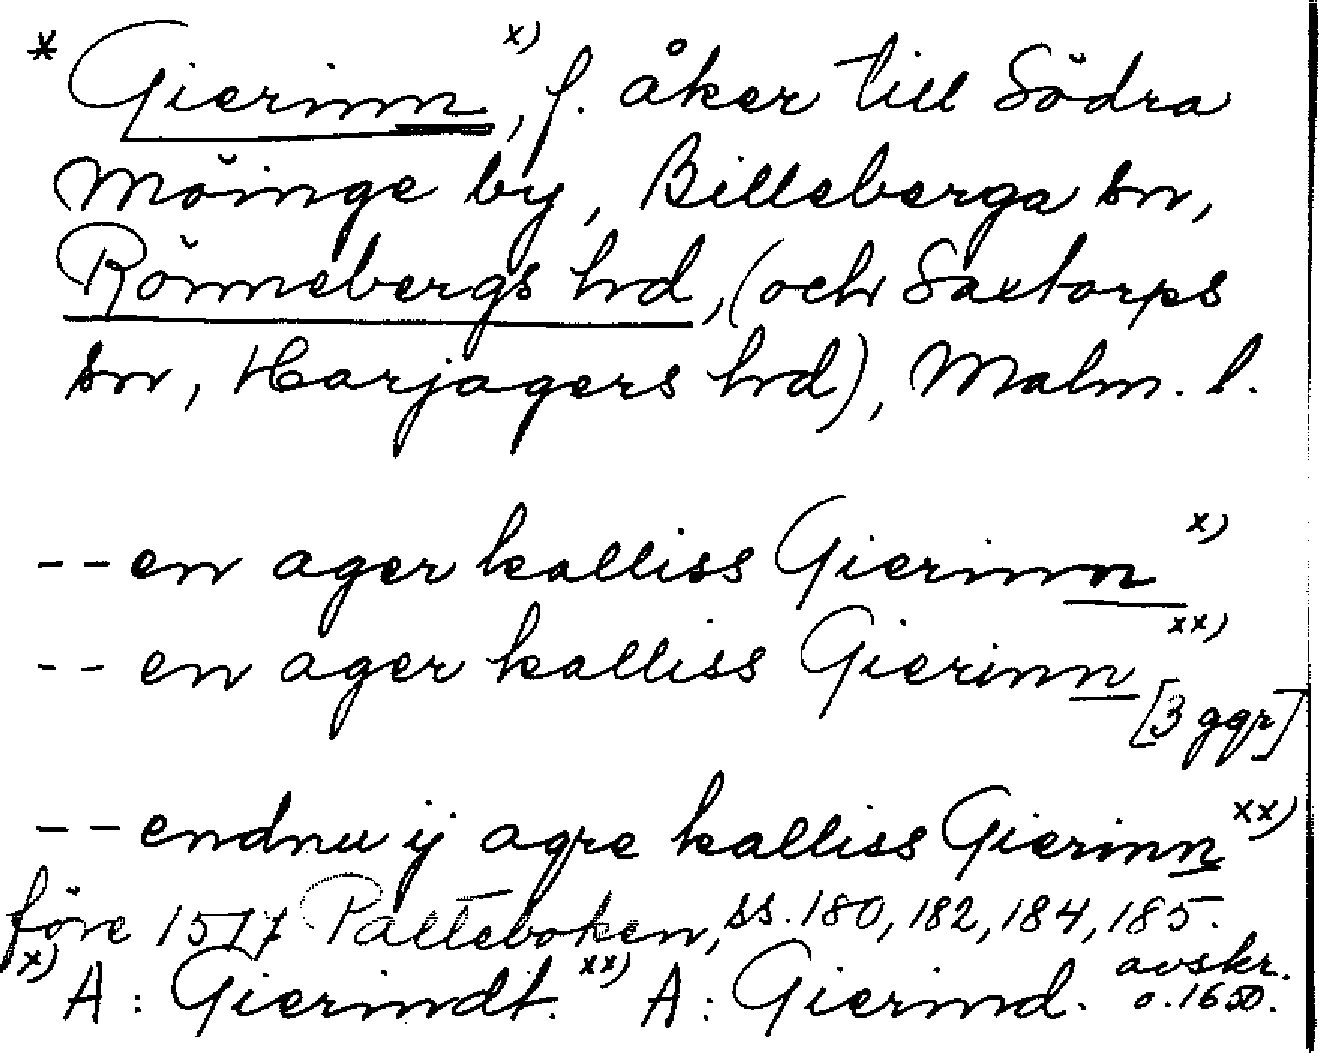 * Gierinn x), f. åker till Södra
Möinge by, Billeberga sn,
Rönnebergs hrd, (och Saxtorps
sn, Harjagers hrd), Malm. l.
-- en ager kalliss Gierinn x)
-- en ager kalliss Gierinn xx)
[3 ggr]
-- endnu ij agre kalliss Gierinn xx)
före 1577 Palteboken, ss. 180, 182, 184, 185.
x) A: Gierindt. xx) A: Gierind. avskr.
o. 1650.